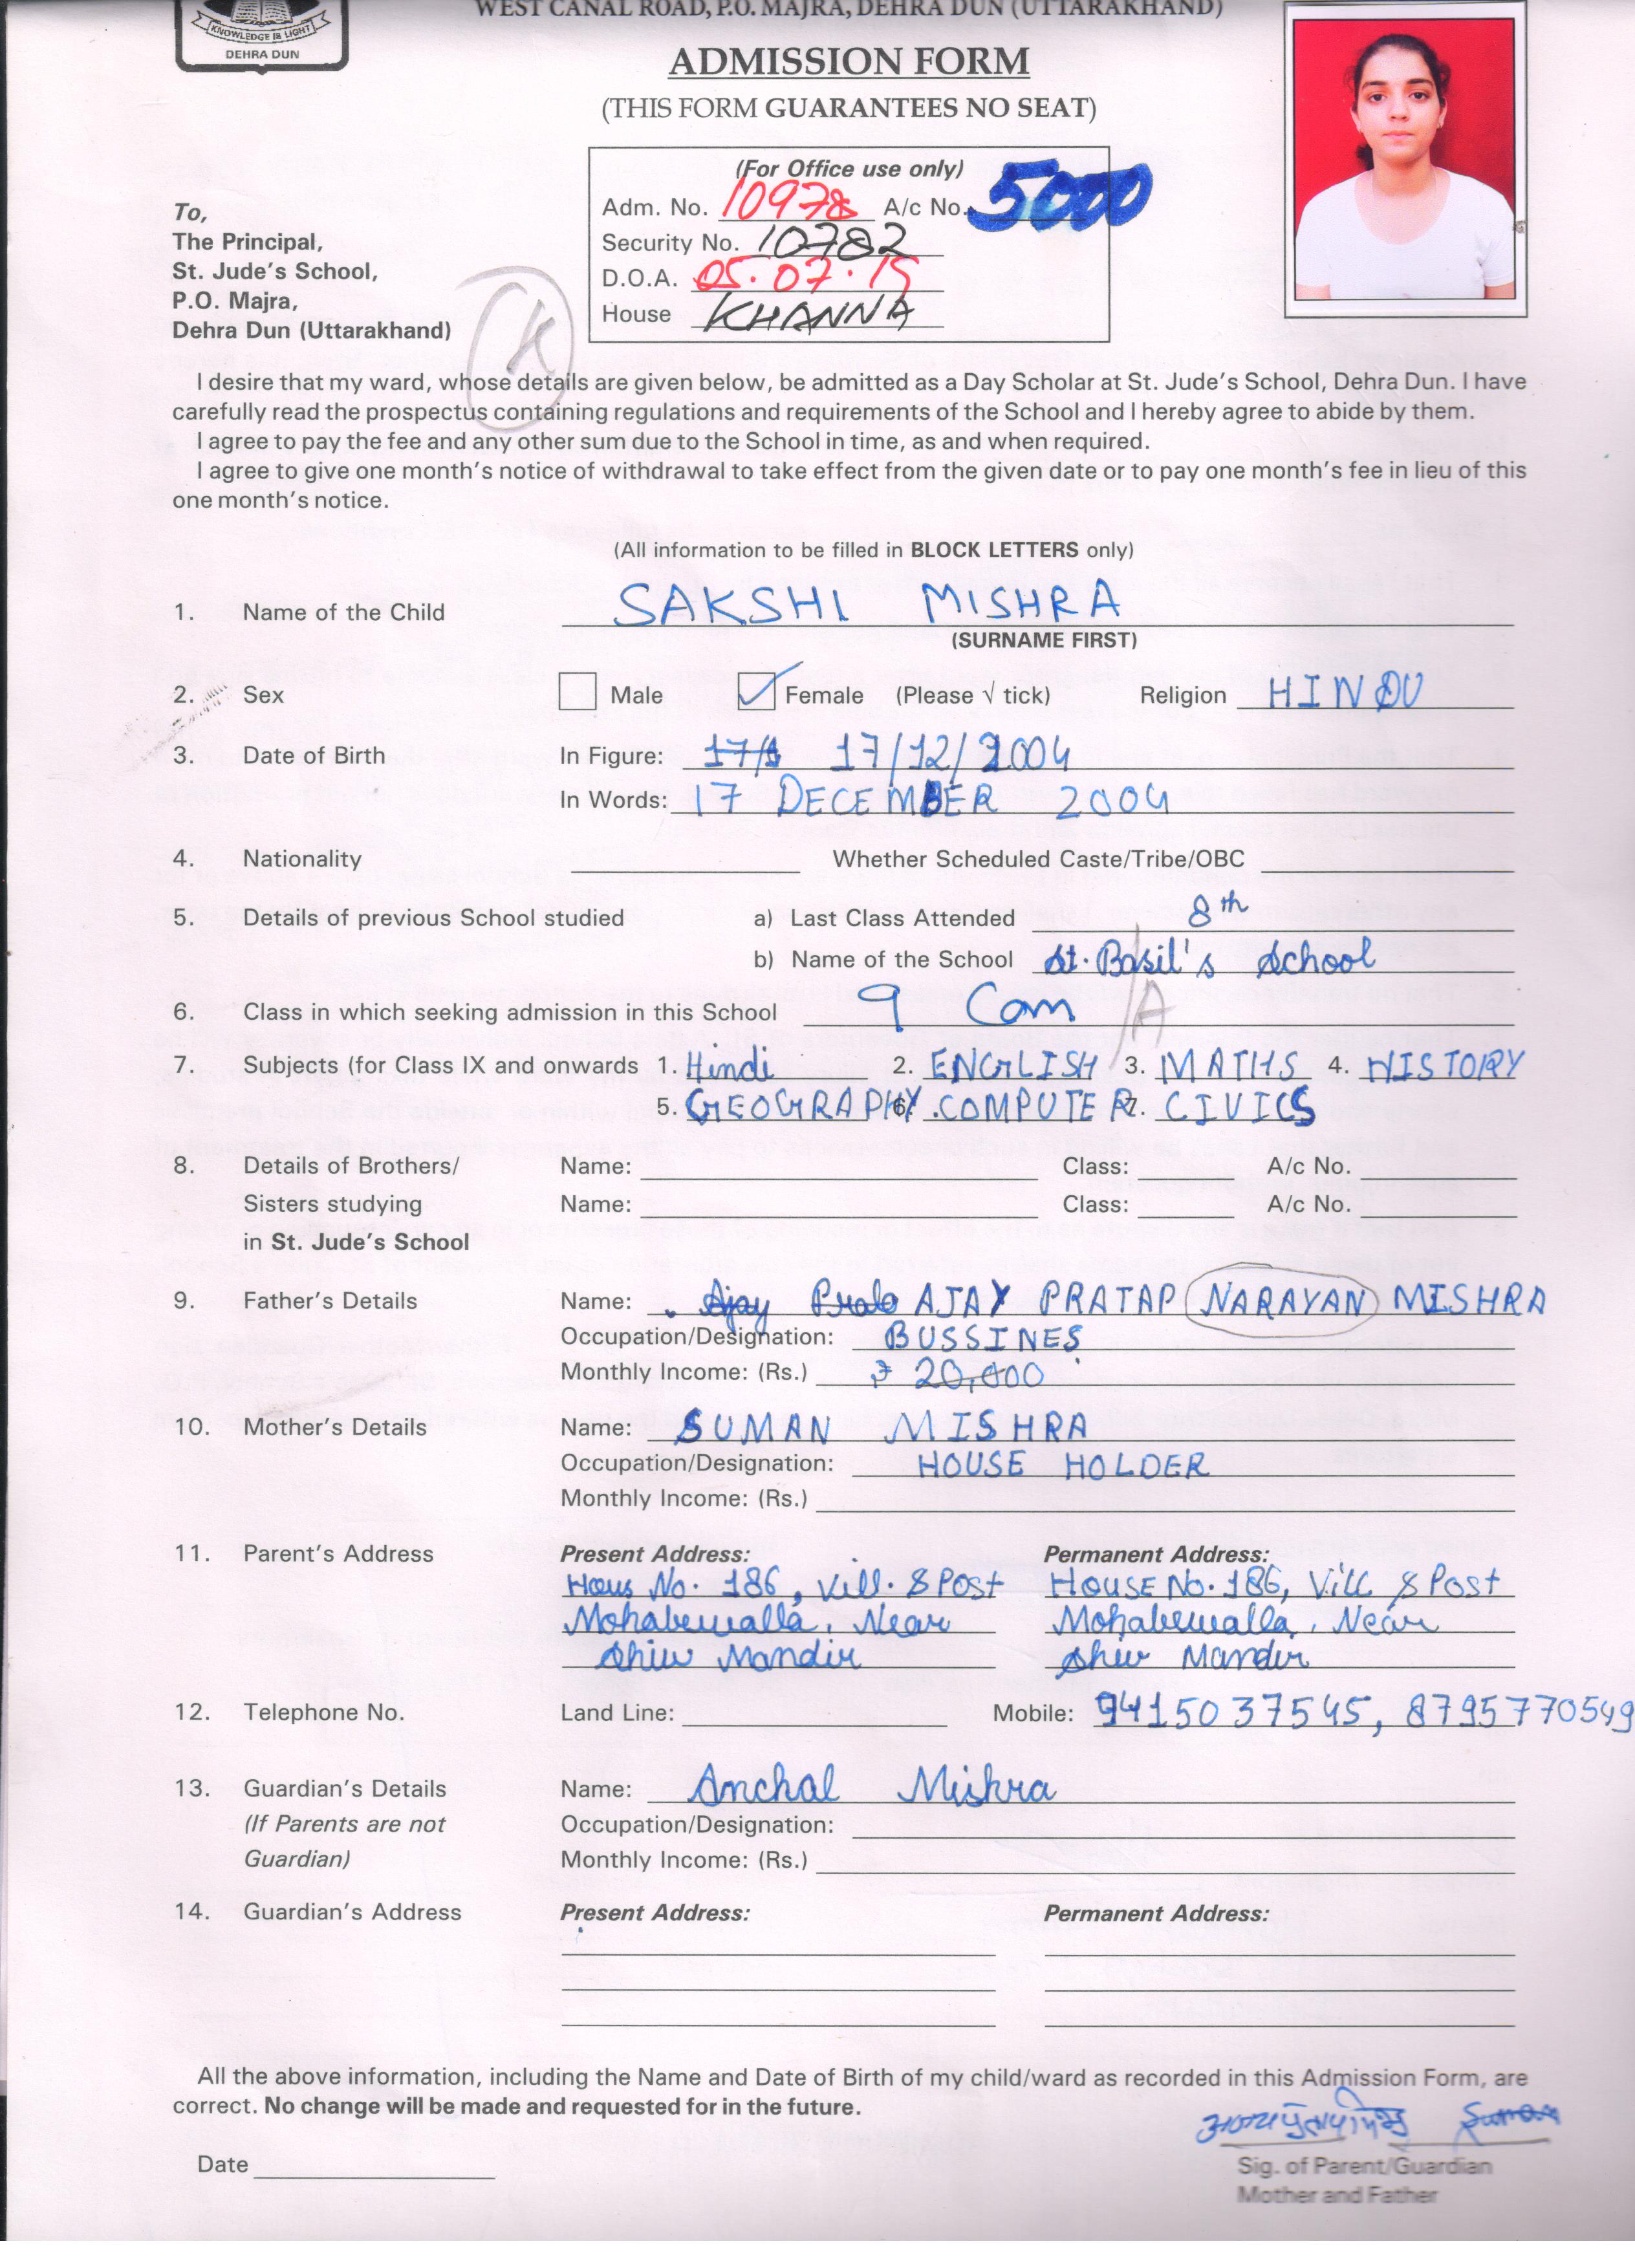 KNOWLEDGE IS LIGHT
DEHRA DUN
WEST CANAL ROAD, P.O. MAJRA, DEHRA DUN (UTTARAKHAND)
ADMISSION FORM
(THIS FORM GUARANTEES NO SEAT)
(For Office use only)
Adm. No. 10978 A/c No. 5000
Security No. 10782
D.O.A. 05.07.19
House KHANNA
To,
The Principal,
St. Jude's School,
P.O. Majra,
Dehra Dun (Uttarakhand)
K
I desire that my ward, whose details are given below, be admitted as a Day Scholar at St. Jude's School, Dehra Dun. I have
carefully read the prospectus containing regulations and requirements of the School and I hereby agree to abide by them.
I agree to pay the fee and any other sum due to the School in time, as and when required.
I agree to give one month's notice of withdrawal to take effect from the given date or to pay one month's fee in lieu of this
one month's notice.
(All information to be filled in BLOCK LETTERS only)
1. Name of the Child SAKSHI MISHRA
(SURNAME FIRST)
2. Sex Male Female (Please √ tick) Religion HINDU
3. Date of Birth In Figure: 17/1 17/12/2004
In Words: 17 DECEMBER 2004
4. Nationality Whether Scheduled Caste/Tribe/OBC
5. Details of previous School studied a) Last Class Attended 8th
b) Name of the School St. Basil's School
6. Class in which seeking admission in this School 9 Com /A
7. Subjects (for Class IX and onwards 1. Hindi 2. ENGLISH 3. MATHS 4. HISTORY
5. GEOGRAPHY 6. COMPUTER 7. CIVICS
8. Details of Brothers/ Name: Class: A/c No.
Sisters studying Name: Class: A/c No.
in St. Jude's School
9. Father's Details Name: Ajay AJAY PRATAP NARAYAN MISHRA
Occupation/Designation: BUSSINES
Monthly Income: (Rs.) ₹ 20,000
10. Mother's Details Name: SUMAN MISHRA
Occupation/Designation: HOUSE HOLDER
Monthly Income: (Rs.)
11. Parent's Address Present Address: Permanent Address:
Hous No. 186, Vill. & Post HOUSE No. 186, Vill & Post
Mohabewalla, Near Mohabewalla, Near
Shiv Mandir Shiv Mandir
12. Telephone No. Land Line: Mobile: 9415037545, 8795770549
13. Guardian's Details Name: Anchal Mishra
(If Parents are not Occupation/Designation:
Guardian) Monthly Income: (Rs.)
14. Guardian's Address Present Address: Permanent Address:
All the above information, including the Name and Date of Birth of my child/ward as recorded in this Admission Form, are
correct. No change will be made and requested for in the future.
Suman
Date
Sig. of Parent/Guardian
Mother and Father